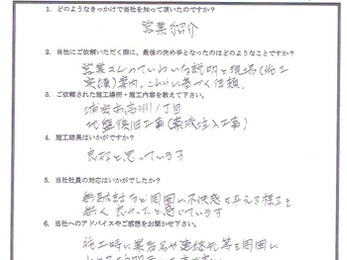 1. どのようなきっかけで当社を知って頂いたのですか?
営業紹介
2. 当社にご依頼いただく際に、最後の決め手となったのはどのようなことですか?
営業さんのていねいな説明と現場(施工
実績)案内、これに基づく信頼。
3. ご依頼された施工場所・施工内容を教えて下さい。
浦安市高洲1丁目
地盤復旧工事(薬液注入工事)
4. 施工結果はいかがですか?
良好と思っています
5. 当社社員の対応はいかがでしたか?
周囲に不快感を与える様子も
無く良かったと感じています
6. 当社へのアドバイスやご感想をお聞かせ下さい。
施工時に業者名や連絡先等を周囲に